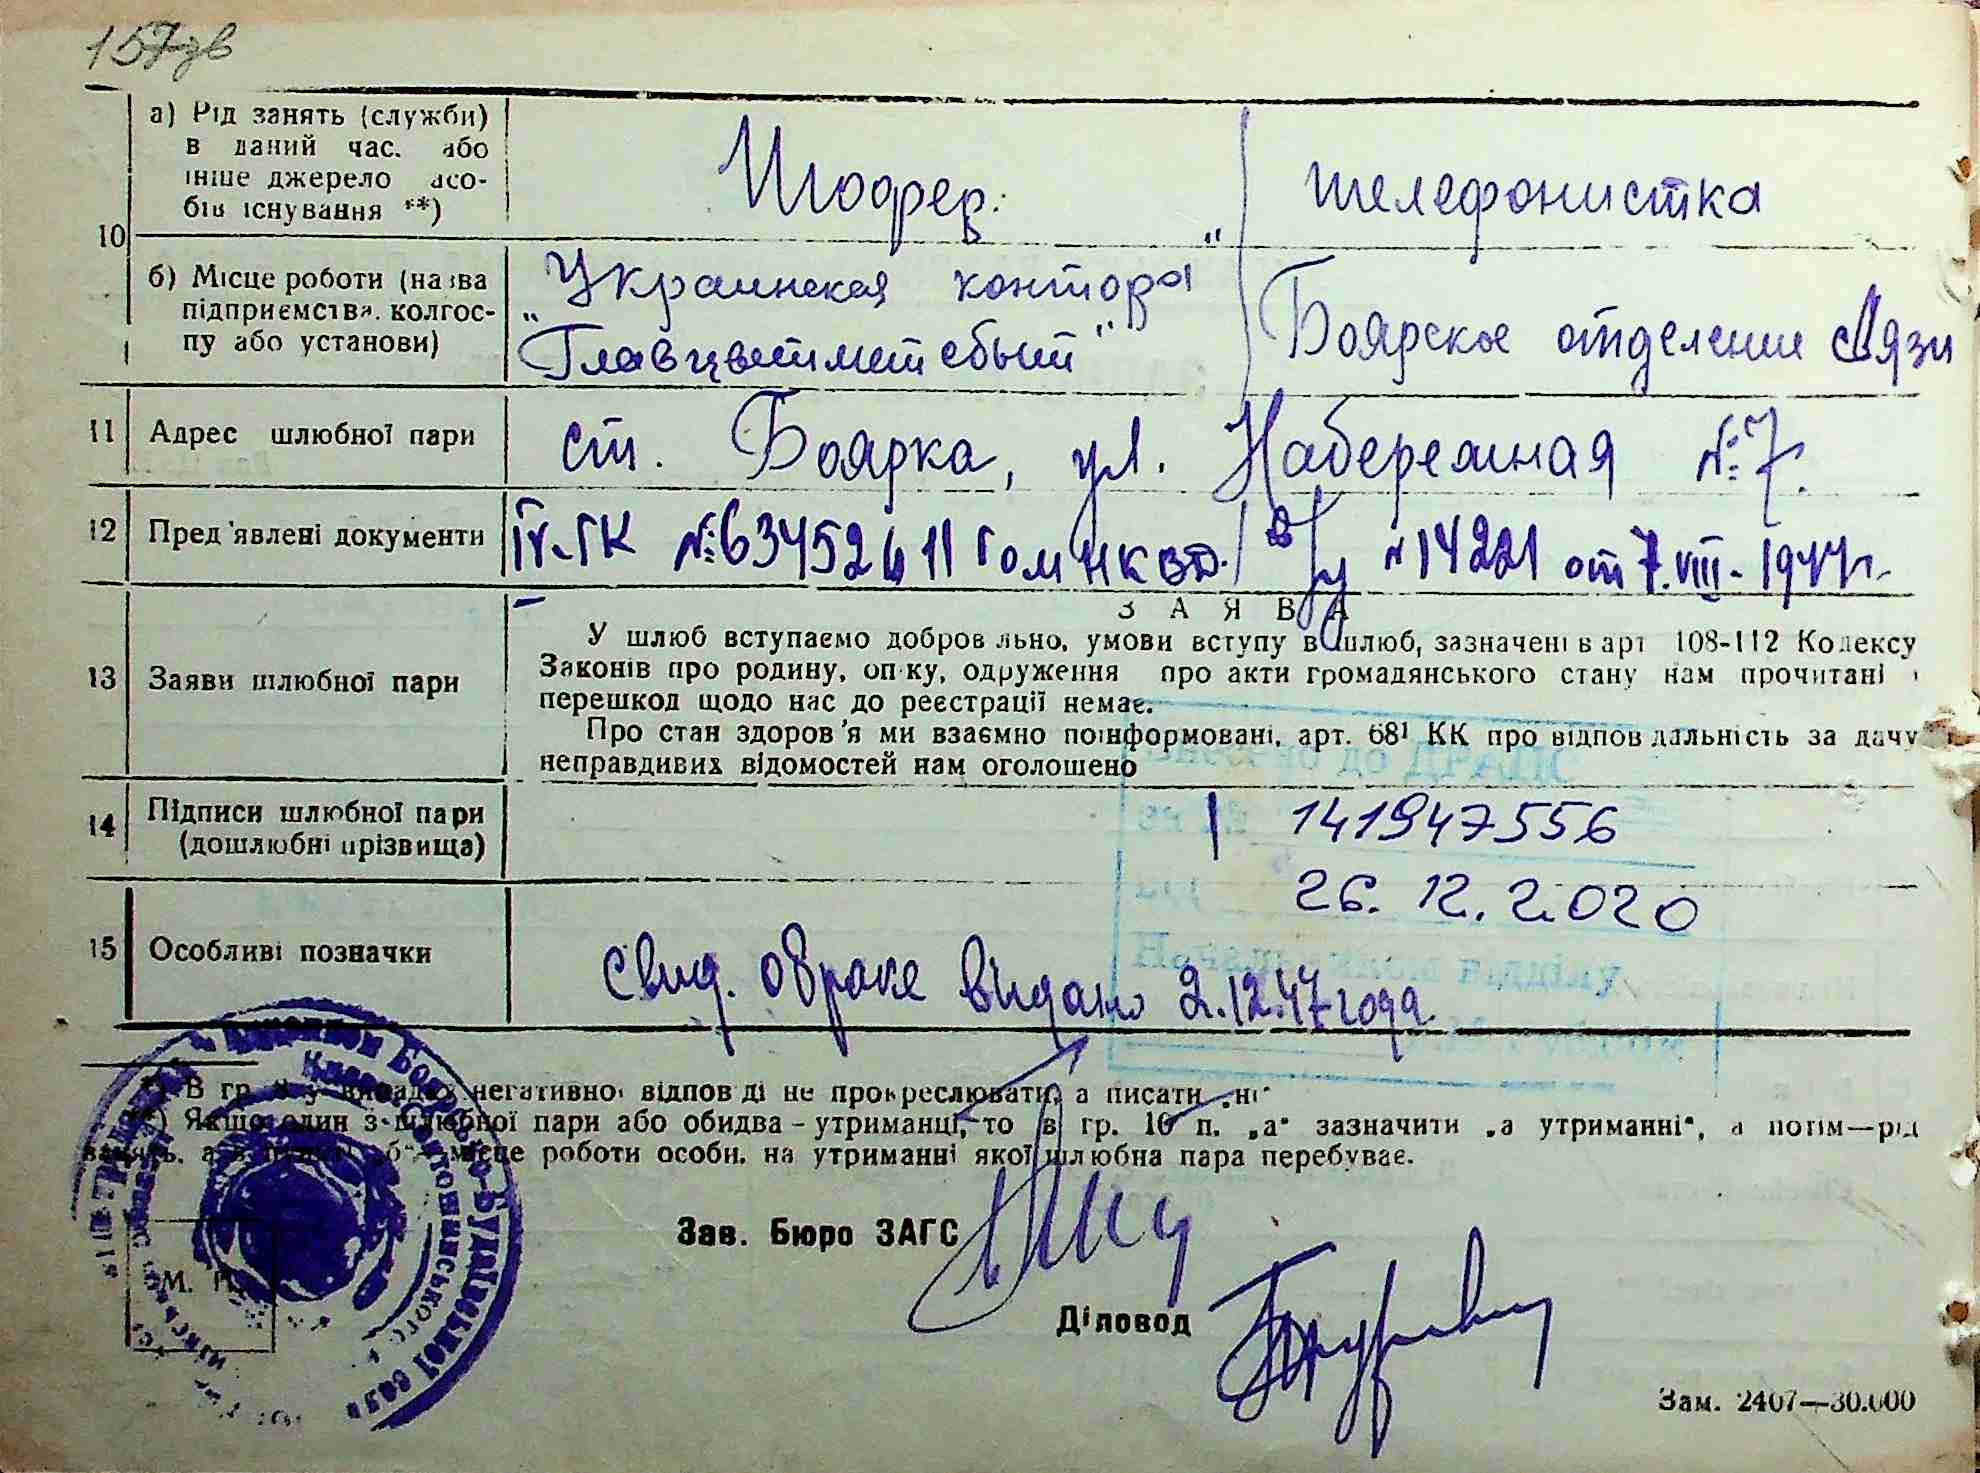 157зв
а) Рід занять (служби) в даний час. або інше джерело засобів існування **)
Шофер.
телефонистка
10
б) Місце роботи (назва підприємства. колгоспу або установи)
Украинская контора
"Главцветметсбыт"
Боярское отделение связи
11 Адрес шлюбної пари
ст. Боярка, ул. Набережная №7.
12 Пред'явлені документи
№ 14221 от 7.VIII-1944г.
13 Заяви шлюбної пари
ЗАЯВА
У шлюб вступаємо добров льно, умови вступу в шлюб, зазначені в арт 108-112 Кодексу
Законів про родину, оп ку, одруження про акти громадянського стану нам прочитані і
перешкод щодо нас до реєстрації немає.
Про стан здоров'я ми взаємно поінформовані, арт. 68¹ КК про відпов дальність за дачу
неправдивих відомостей нам оголошено
14 Підписи шлюбної пари
(дошлюбні прізвища)
141947556
26.12.2020
15 Особливі позначки
свид. о браке видано 2.12.47 года
*) В гр. у випадку негативної відпов ді не прокреслювати, а писати „ні"
**) Якщо один з шлюбної пари або обидва – утриманці, то в гр. 10 п. „а" зазначити „а утриманні", а потім—рід
занять, а в пункті „б" місце роботи особи, на утриманні якої шлюбна пара перебуває.
Зав. Бюро ЗАГС
М. П.
Діловод
Зам. 2407—30.000